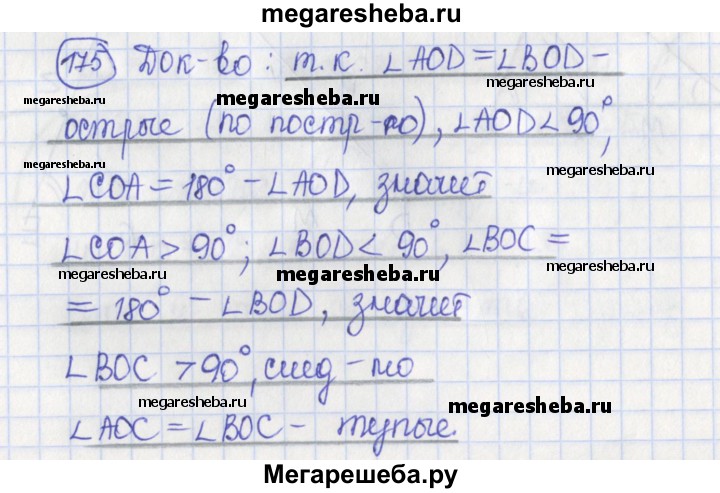 megaresheba.ru
175 Док-во: т.к. ∠AOD = ∠BOD -
megaresheba.ru megaresheba.ru megaresheba.ru
острые (по постр-ю), ∠AOD < 90°,
∠COA = 180° - ∠AOD, значит
∠COA > 90°; ∠BOD < 90°, ∠BOC =
megaresheba.ru megaresheba.ru megaresheba.ru
= 180° - ∠BOD, значит
∠BOC > 90°, след-но
megaresheba.ru megaresheba.ru
∠AOC = ∠BOC - тупые.
Мегарешеба.ру